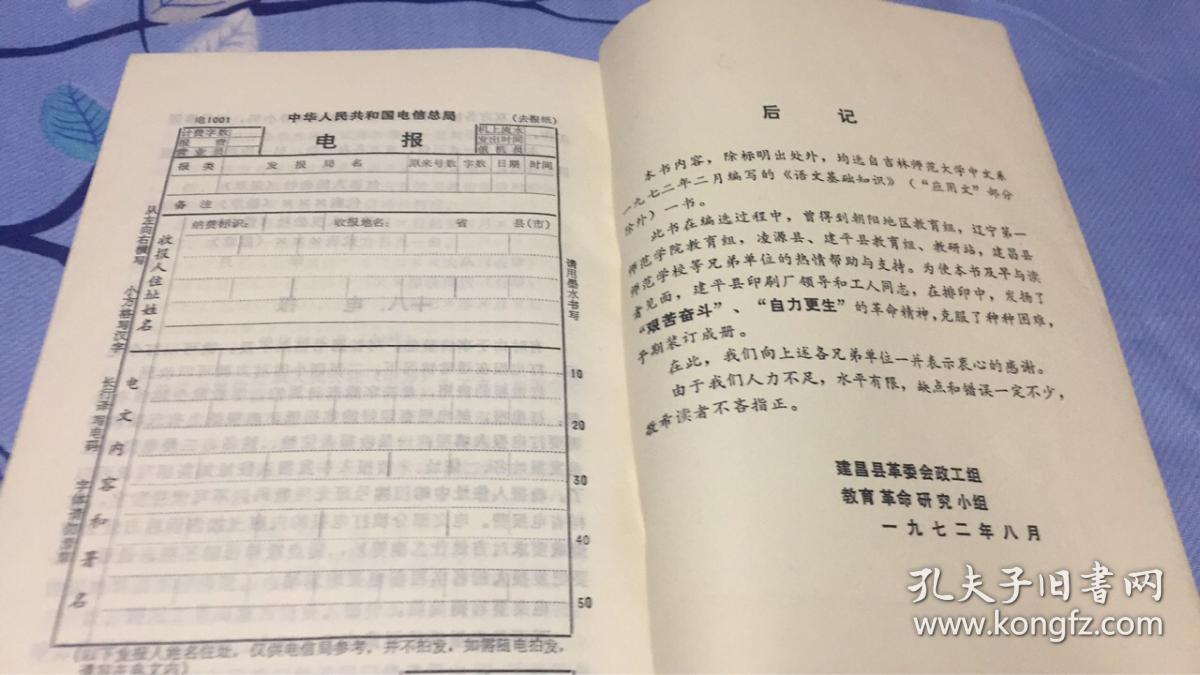 电1001 中华人民共和国电信总局 (去报纸)
计费字数
报费
营业员
电报
机上流水
发出时间
值机员
报类 发报局名 原来号数 字数 日期 时间
备注
纳费标识: 收报地名: 省 县(市)
收报人住址姓名
从左向右横写
小方格写汉字
长行译写电码
请用墨水书写
电文内容和署名
10
20
30
40
50
(以下发报人姓名住址,仅供电信局参考,并不拍发,如需随电拍发,
请写在电文内)
后记
本书内容,除标明出处外,均选自吉林师范大学中文系
一九七二年二月编写的《语文基础知识》(“应用文”部分
除外)一书。
此书在编选过程中,曾得到朝阳地区教育组,辽宁第一
师范学院教育组,凌源县、建平县教育组、教研站,建昌县
师范学校等兄弟单位的热情帮助与支持。为使本书及早与读
者见面,建平县印刷厂领导和工人同志,在排印中,发扬了
“艰苦奋斗”、“自力更生”的革命精神,克服了种种困难,
予期装订成册。
在此,我们向上述各兄弟单位一并表示衷心的感谢。
由于我们人力不足,水平有限,缺点和错误一定不少,
敬希读者不吝指正。
建昌县革委会政工组
教育革命研究小组
一九七二年八月
孔夫子旧书网
www.kongfz.com